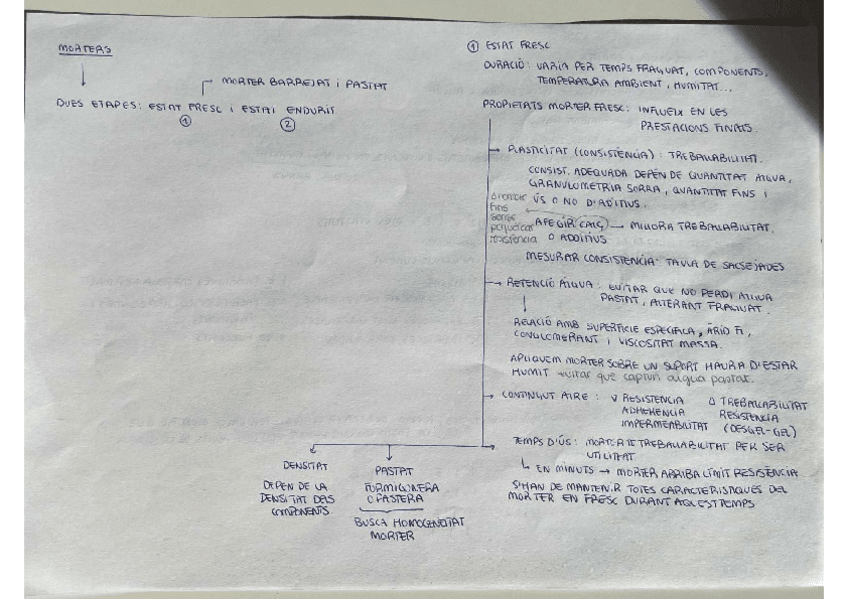 MORTERS
MORTER BARREJAT I PASTAT
DUES ETAPES: ESTAT FRESC I ESTAT ENDURIT
1
2
1 ESTAT FRESC
DURACIÓ: VARIA PER TEMPS FRAGUAT, COMPONENTS,
TEMPERATURA AMBIENT, HUMITAT...
PROPIETATS MORTER FRESC: INFLUEIX EN LES
PRESTACIONS FINALS.
→ PLASTICITAT (CONSISTÈNCIA): TREBALLABILITAT.
CONSIST. ADEQUADA DEPÈN DE QUANTITAT AIGUA,
GRANULOMETRIA SORRA, QUANTITAT FINS I
ÚS O NO D'ADITIUS.
fins
sense
perjudicar
resistència
AFEGIR CALÇ → MILLORA TREBALLABILITAT.
O ADDITIUS
MESURAR CONSISTÈNCIA: TAULA DE SACSEJADES
→ RETENCIÓ AIGUA: EVITAR QUE NO PERDI AIGUA
PASTAT, ALTERANT FRAGUAT.
RELACIÓ AMB SUPERFICIE ESPECIFICA, ÀRID FI,
CONGLOMERANT I VISCOSITAT MASSA.
APLIQUEM MORTER SOBRE UN SUPORT HAURÀ D'ESTAR
HUMIT evitar que capturi aigua pastat.
→ CONTINGUT AIRE: ∇ RESISTENCIA Δ TREBALLABILITAT
ADHERENCIA RESISTENCIA
IMPERMEABILITAT (DESGEL-GEL)
→ TEMPS D'ÚS: MORTER TÉ TREBALLABILITAT PER SER
UTILITZAT
EN MINUTS → MORTER ARRIBA LÍMIT RESISTÈNCIA
S'HAN DE MANTENIR TOTES CARACTERISTIQUES DEL
MORTER EN FRESC DURANT AQUEST TEMPS
DENSITAT
DEPEN DE LA
DENSITAT DELS
COMPONENTS.
PASTAT
FORMIGONERA
O PASTERA
BUSCA HOMOGENEITAT
MORTER